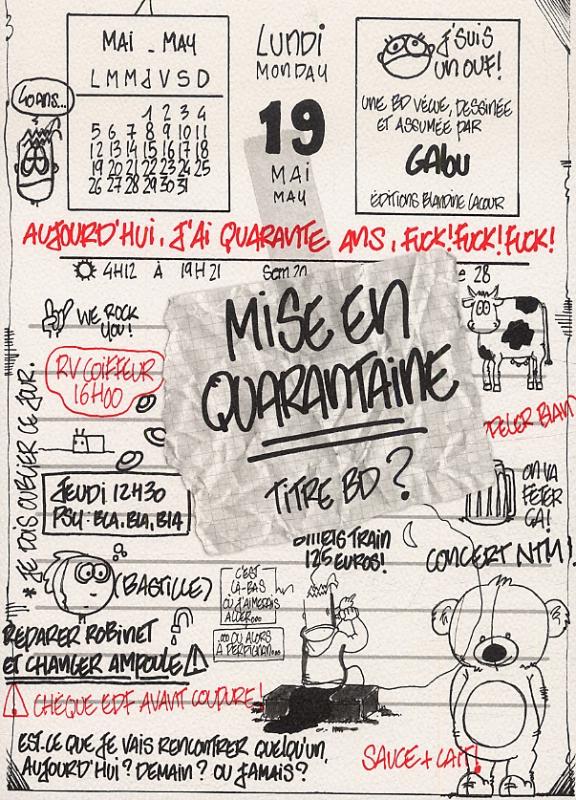 MAI - MAY
L M M J V S D
1 2 3 4
5 6 7 8 9 10 11
12 13 14 15 16 17 18
19 20 21 22 23 24 25
26 27 28 29 30 31
LUNDI
MONDAY
19
MAI
MAY
J'SUIS
UN OUF!
UNE BD VÉCUE, DESSINÉE
ET ASSUMÉE PAR
GABU
ÉDITIONS BLANDINE LACOUR
40 ANS...
AUJOURD'HUI, J'AI QUARANTE ANS, FUCK! FUCK! FUCK!
4H12 À 19H21
Sem 20
28
WE ROCK
YOU!
MISE EN
QUARANTAINE
TITRE BD?
RV COIFFEUR
16H00
PELER BLAND
* JE DOIS OUBLIER CE JOUR.
JEUDI 12H30
PSY: BLA, BLA, BLA
ON VA
FÊTER
ÇA!
BILLETS TRAIN
125 EUROS!
CONCERT NTM!
(BASTILLE)
C'EST
LÀ-BAS
OÙ J'AIMERAIS
ALLER...
...OU ALORS
À PERPIGNAN...
RÉPARER ROBINET
ET CHANGER AMPOULE
CHÈQUE EDF AVANT COUPURE!
EST-CE QUE JE VAIS RENCONTRER QUELQU'UN,
AUJOURD'HUI? DEMAIN? OU JAMAIS?
SAUCE + LAIT!